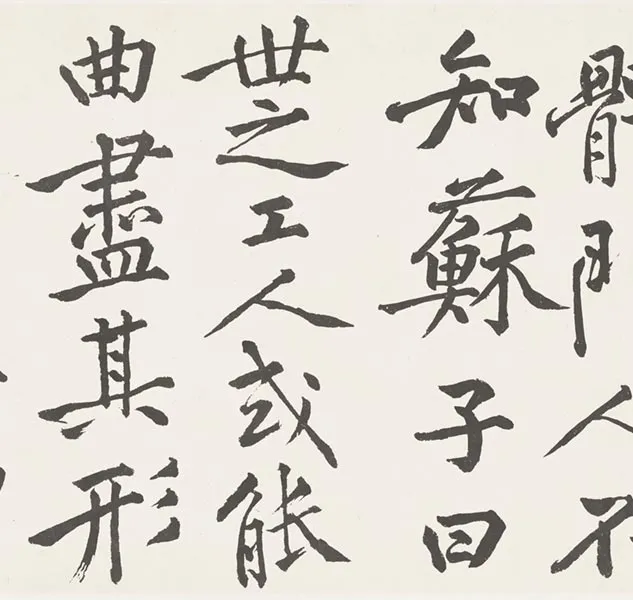 門人不
知蘇子曰
世之工人或能
曲盡其形